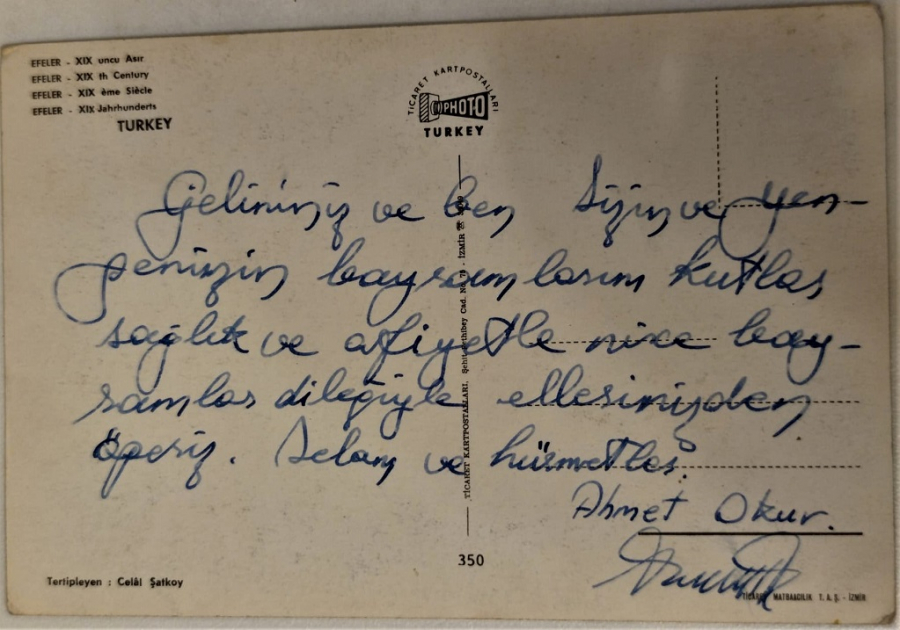 EFELER - XIX uncu Asır
EFELER - XIX th Century
EFELER - XIX ème Siècle
EFELER - XIX Jahrhunderts
TURKEY
TİCARET KARTPOSTALLARI
PHOTO
TURKEY
Gelininiz ve ben sizin ve yen-
penizin bayramlarını kutlar
sağlık ve afiyetle nice bay-
ramlar dileğiyle ellerinizden
öperiz. Selam ve hürmetler.
Ahmet Okur.
TİCARET KARTPOSTALLARI. Şehit Fethibey Cad. No. - İZMİR
350
Tertipleyen : Celâl Şatkoy
TİCARET MATBAACILIK T. A. Ş. - İZMİR